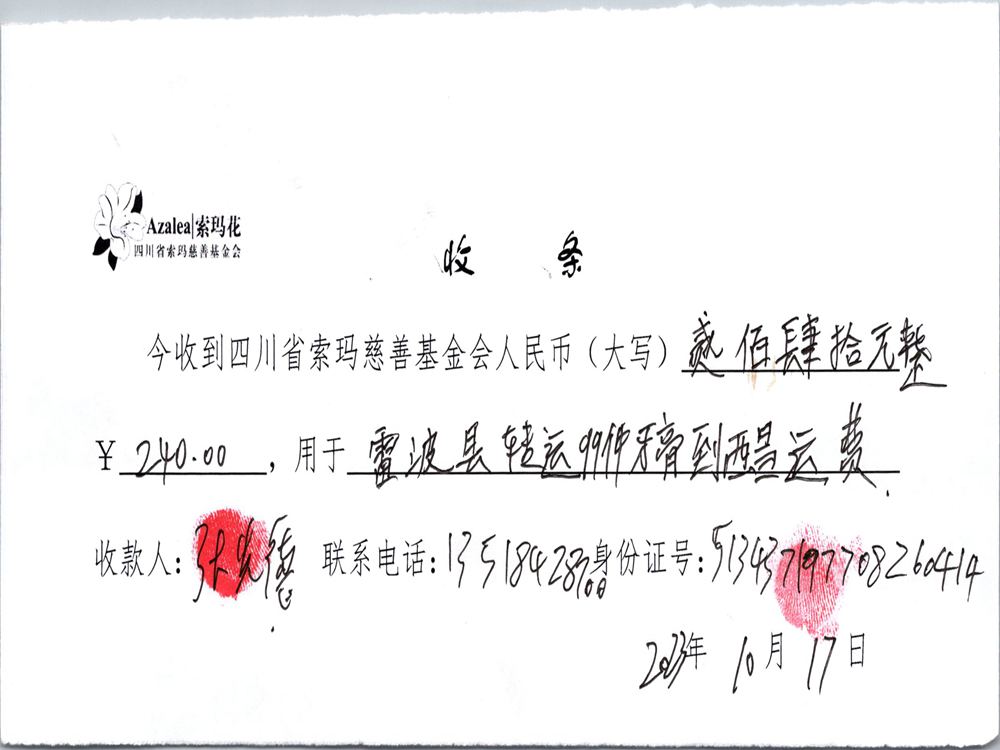 Azalea|索玛花
四川省索玛慈善基金会
收 条
今收到四川省索玛慈善基金会人民币（大写）贰佰肆拾元整
￥240.00，用于雷波县转运99件牙膏到西昌运费.
收款人：张光德 联系电话：13518428700身份证号：513437197708260414
2023年10月17日